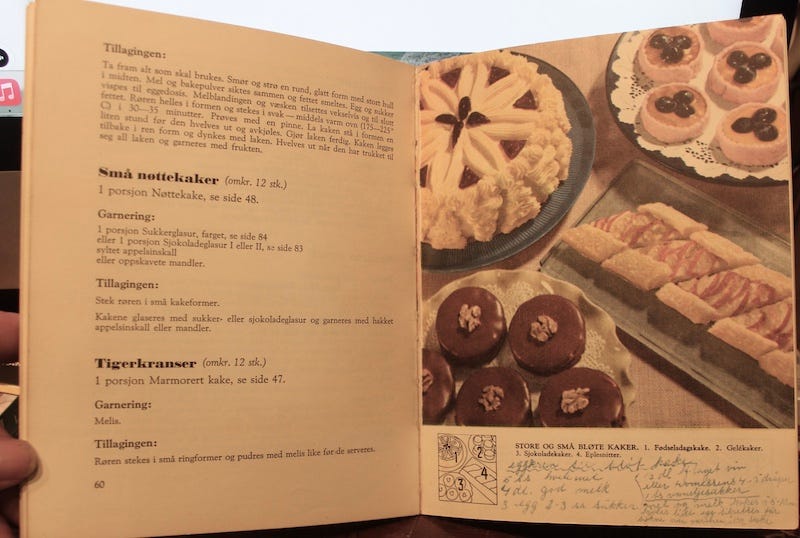 Tillagingen:
Ta fram alt som skal brukes. Smør og strø en rund, glatt form med stort hull
i midten. Mel og bakepulver siktes sammen og fettet smeltes. Egg og sukker
vispes til eggedosis. Melblandingen og væsken tilsettes vekselvis og til slutt
fettet. Røren helles i formen og stekes i svak—middels varm ovn (175—225°
C) i 30—35 minutter. Prøves med en pinne. La kaken stå i formen en
liten stund før den hvelves ut og avkjøles. Gjør laken ferdig. Kaken legges
tilbake i ren form og dynkes med laken. Hvelves ut når den har trukket til
seg all laken og garneres med frukten.
Små nøttekaker (omkr. 12 stk.)
1 porsjon Nøttekake, se side 48.
Garnering:
1 porsjon Sukkerglasur, farget, se side 84
eller 1 porsjon Sjokoladeglasur I eller II, se side 83
syltet appelsinskall
eller oppskavete mandler.
Tillagingen:
Stek røren i små kakeformer.
Kakene glaseres med sukker- eller sjokoladeglasur og garneres med hakket
appelsinskall eller mandler.
Tigerkranser (omkr. 12 stk.)
1 porsjon Marmorert kake, se side 47.
Garnering:
Melis.
Tillagingen:
Røren stekes i små ringformer og pudres med melis like før de serveres.
60
1
2
3
4
STORE OG SMÅ BLØTE KAKER. 1. Fødselsdagskake. 2. Gelékaker.
3. Sjokoladekaker. 4. Eplesnitter.
bløt kake
5 ss hvetemel
4 dl. god melk
3 egg 2-3 ss sukker
2 dl
vin
eller
1 ss vaniljesukker
mel og melk kokes